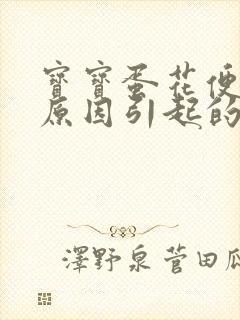 寶寶蛋花便
原因引起的
澤野泉菅田瓜